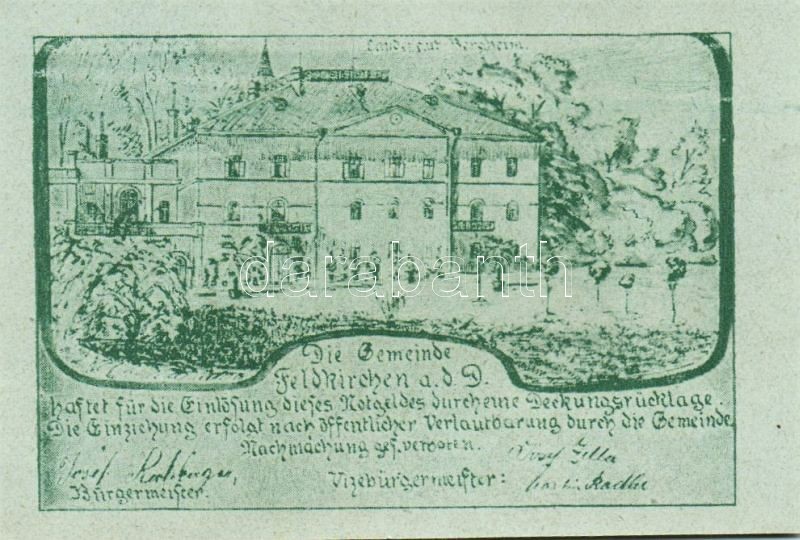 Landesgut Bergheim.
darabanth
Die Gemeinde
Feldkirchen a. d. D.
haftet für die Einlösung dieses Notgeldes durch eine Deckungsrücklage.
Die Einziehung erfolgt nach öffentlicher Verlautbarung durch die Gemeinde
Nachmachung ges. verboten.
Josef
Bürgermeister.
Vizebürgermeister: